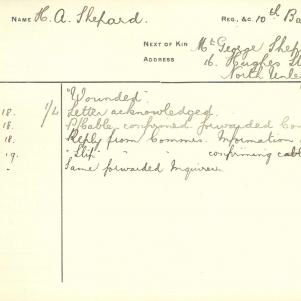 NAME H. A. Shepard. REG., &C. 10th Ba
NEXT OF KIN Mr George Shep
ADDRESS 16. Hughes St
North Unle
"Wounded"
18. 1/4 Letter acknowledged.
18. P/Cable confirmed forwarded Com
18. Reply from Commis. Information
19. "Slip" " confirming cabl
" Same forwarded Inquirer